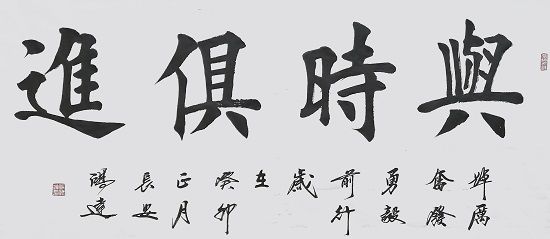 與時俱進
踔厲
奮發
勇毅
前行
歲
在
癸卯
正月
長安